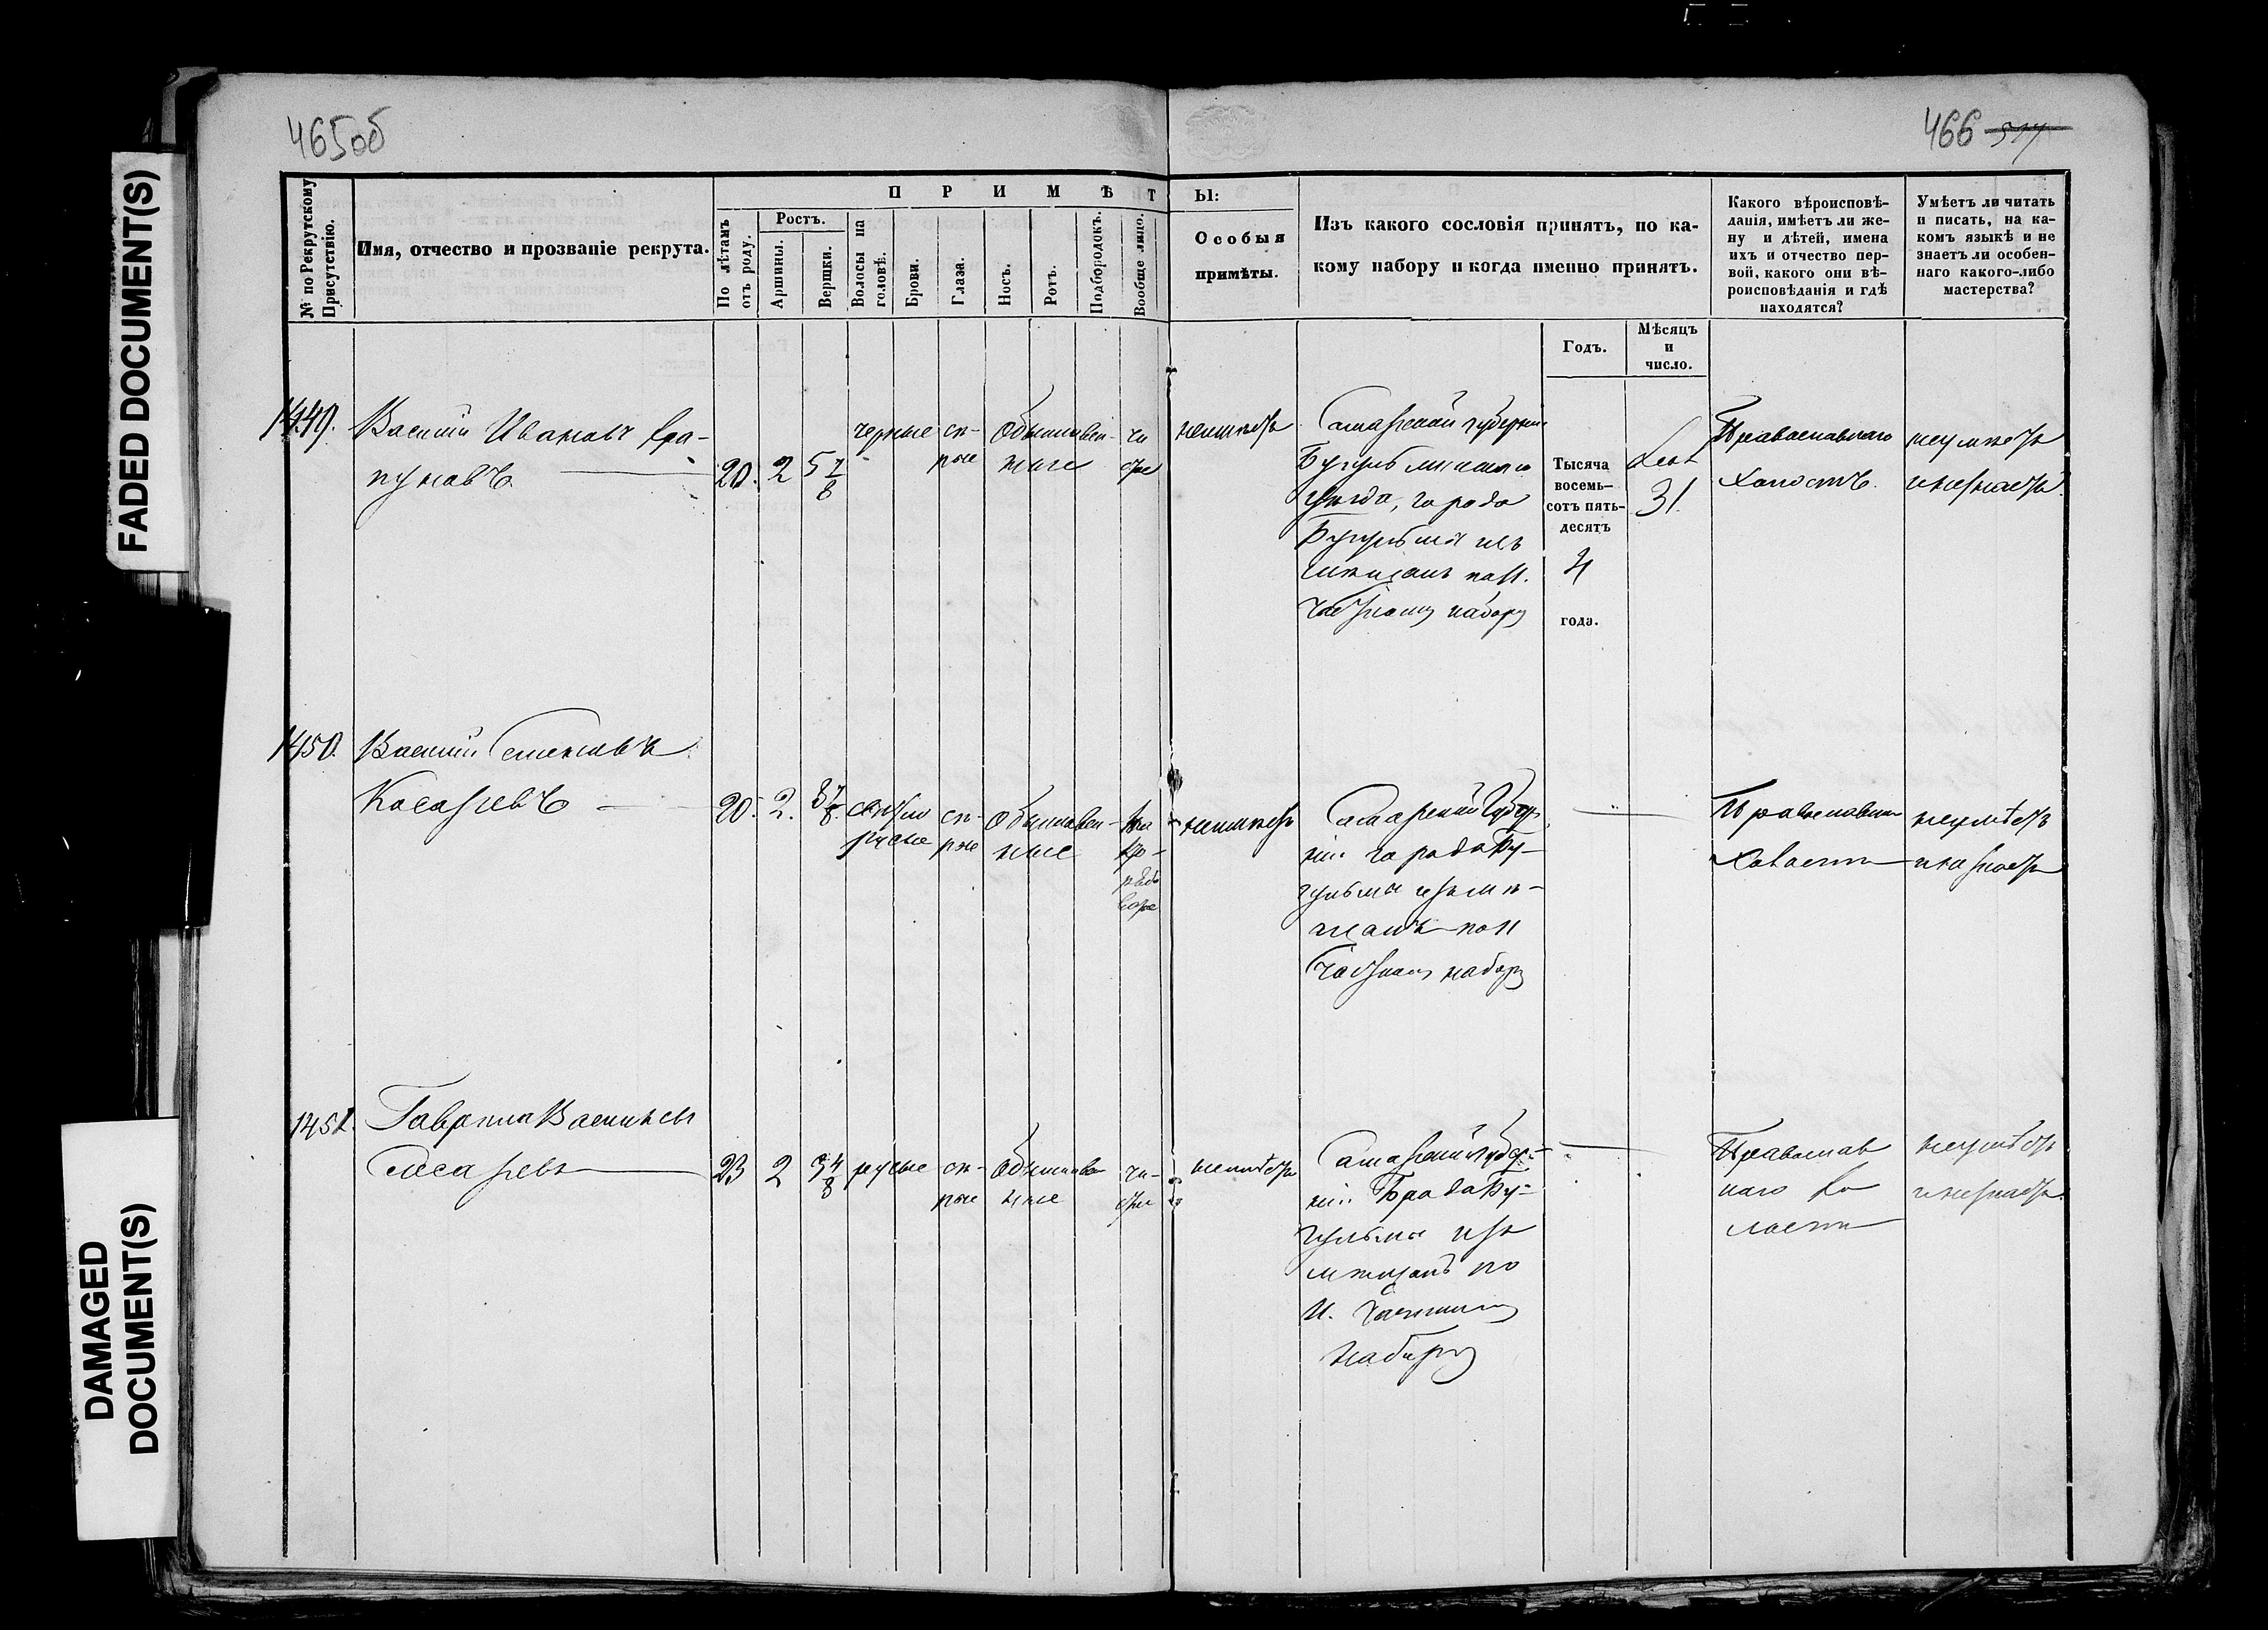 465об
466 517
FADED DOCUMENT(S)
DAMAGED
DOCUMENT(S)
№ по Рекрутскому
Присутствію.
Имя, отчество и прозваніе рекрута.
ПРИМѢТЫ:
По лѣтамъ
отъ роду.
Ростъ.
Аршины.
Вершки.
Волосы на
головѣ.
Брови.
Глаза.
Носъ.
Ротъ.
Подбородокъ.
Вообще лицо.
Особыя
примѣты.
Изъ какого сословія принятъ, по ка-
кому набору и когда именно принятъ.
Годъ.
Мѣсяцъ
и
число.
Какого вѣроисповѣ-
данія, имѣетъ ли же-
ну и дѣтей, имена
ихъ и отчество пер-
вой, какого они вѣ-
роисповѣданія и гдѣ
находятся?
Умѣетъ ли читать
и писать, на ка-
комъ языкѣ и не
знаетъ ли особен-
наго какого-либо
мастерства?
1449.
Василій Ивановъ
20. 2 5 7/8
черные
сѣ-
рые
Обыкновен-
ные
чи
стое
неимѣетъ
Самарской губерніи
Бугульминскаго
уѣзда, города
Бугульмы изъ
мѣщанъ по 11.
частному набору
Тысяча
восемь-
сотъ пять-
десятъ
4
года.
31.
Православнаго
Холостъ.
неумѣетъ
инезнаетъ.
1450.
Василій Степановъ
Косаревъ
20. 2. 3 7/8.
свѣтло
русые
сѣ-
рые
Обыкновен-
ные
неимѣетъ
Самарской Губер-
ніи города Бу-
гульмы изъ мѣ-
щанъ по 11
частному набору
Православнаго
Холостъ
неумѣетъ
инезнаетъ
1451.
Гаврила Васильевъ
Слесаревъ
23 2 3 4/8
русые
сѣ-
рые
Обыкновен
ные
чи-
стое
неимѣетъ
Самарской губер-
ніи Города Бу-
гульмы изъ
мѣщанъ по
11. частному
набору
Православ
наго Хо
лостъ
неумѣетъ
инезнаетъ.